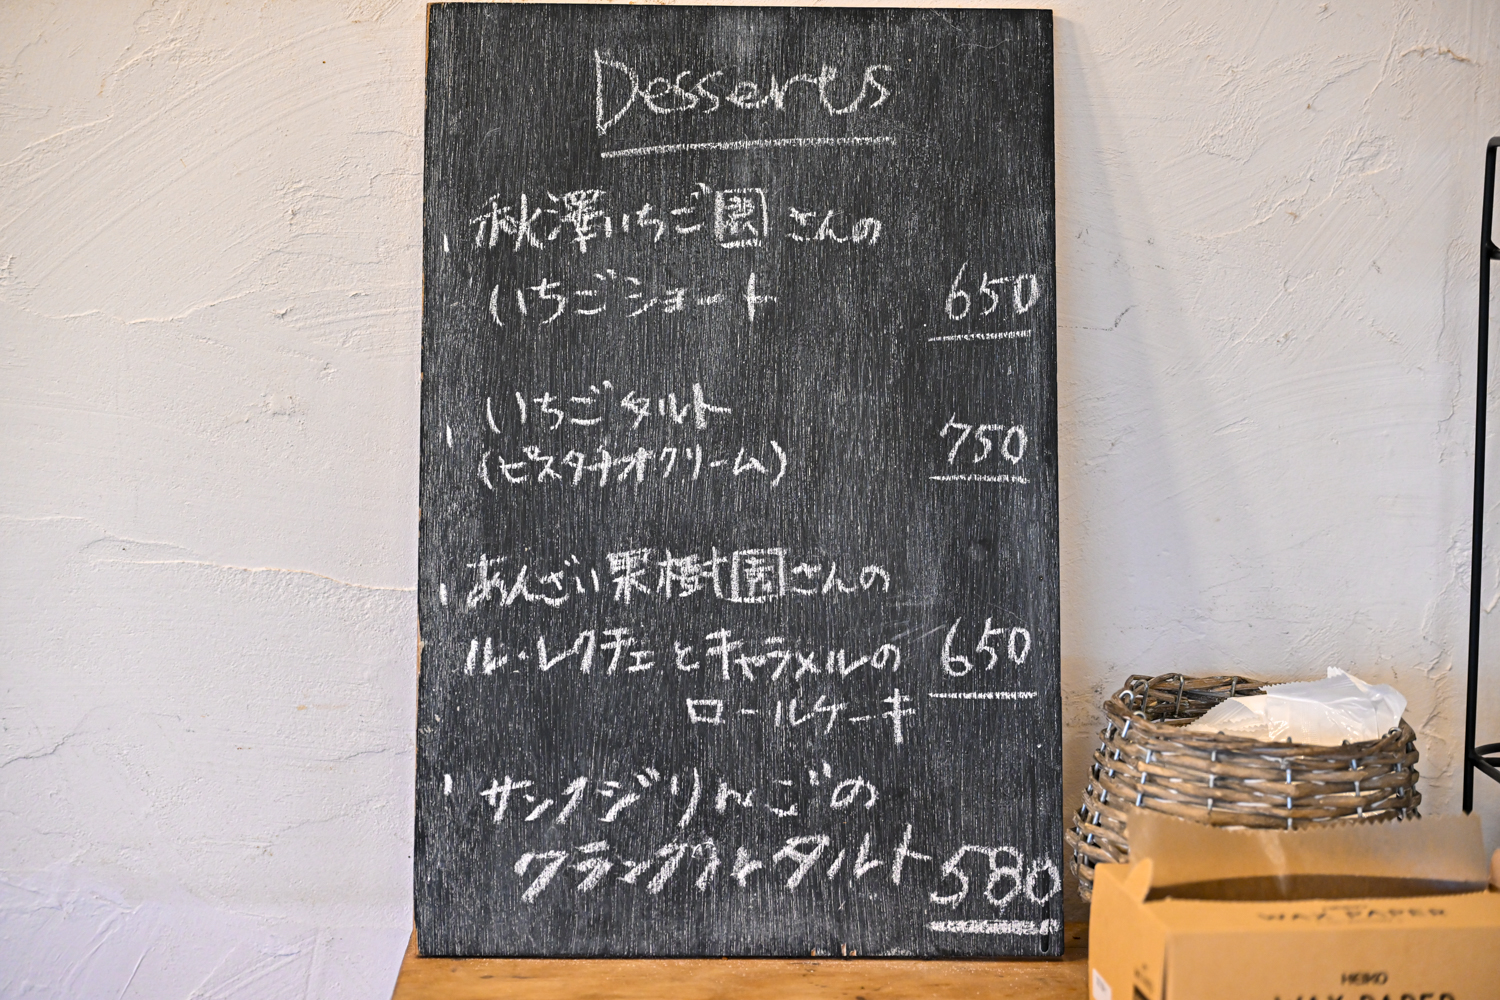 Desserts
秋澤いちご園さんの
いちごショート 650
いちごタルト
(ピスタチオクリーム) 750
あんざい果樹園さんの
ル・レクチェとキャラメルの 650
ロールケーキ
サンフジりんごの
クランブルタルト 580
WAX PAPER
HEIKO
WAX PAPER